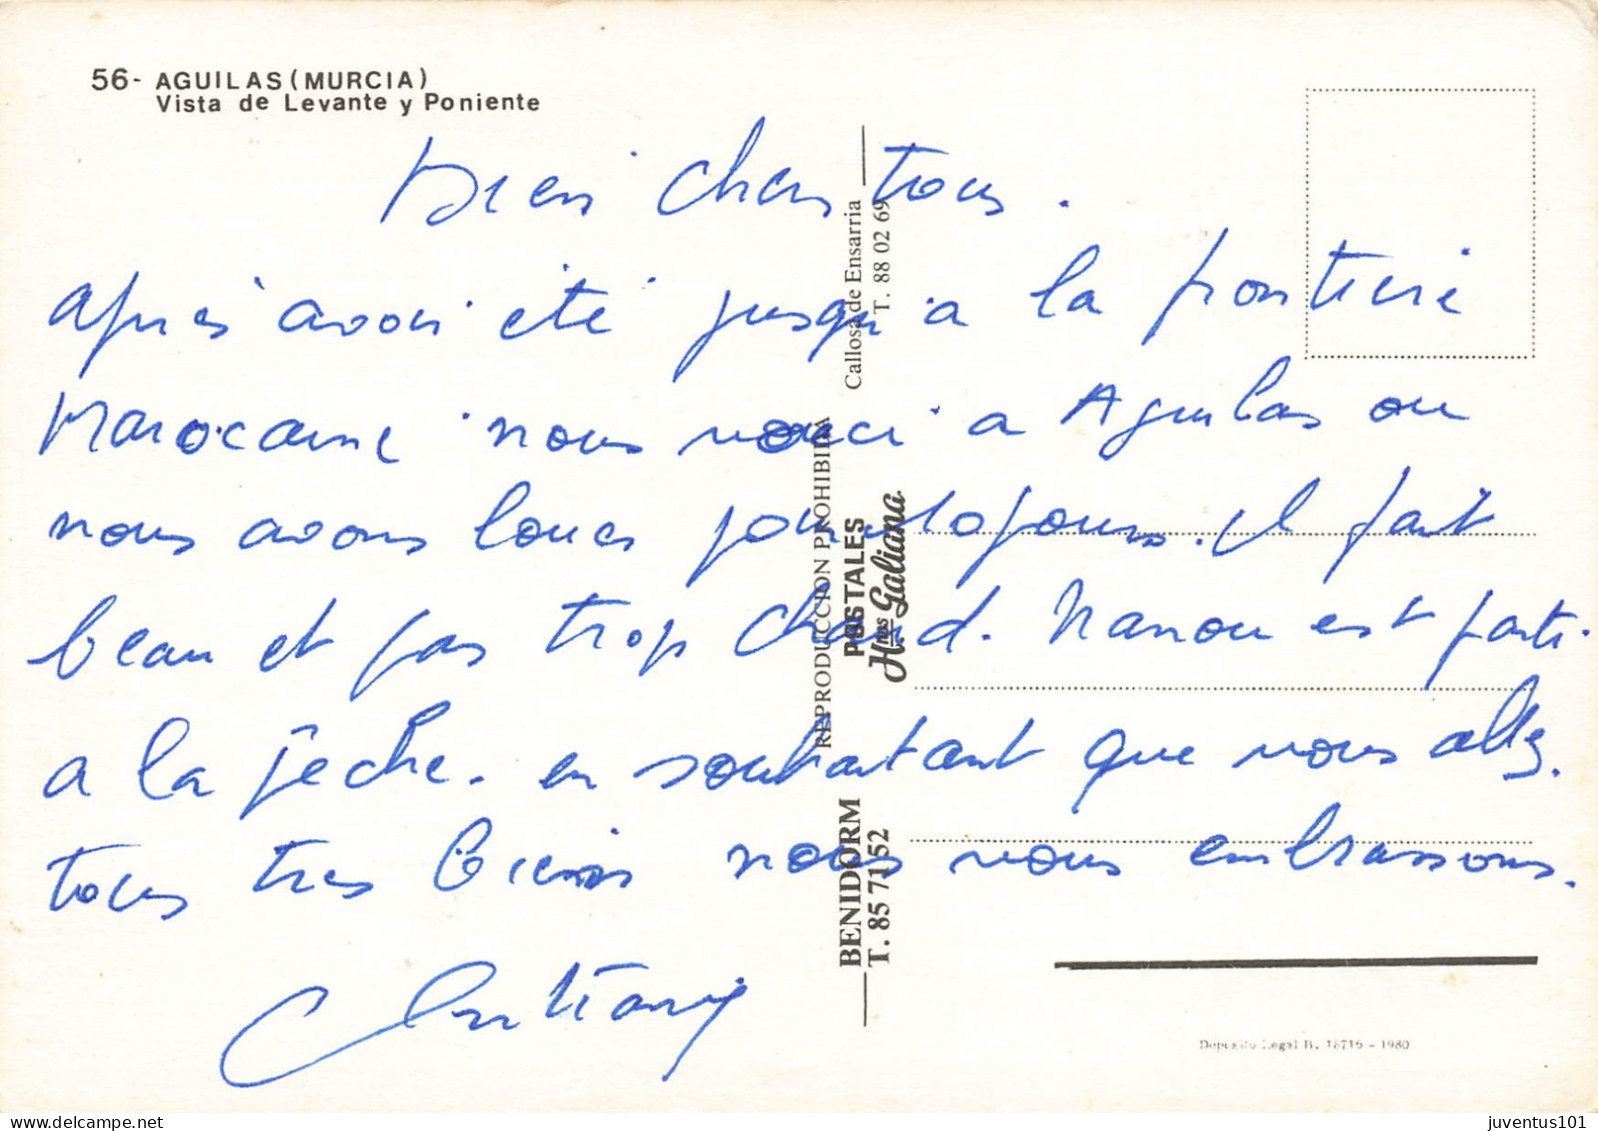 56- AGUILAS (MURCIA)
Vista de Levante y Poniente
Bien chers tous.
après avoir été jusqu'a la frontière
Marocaine nous voici a Aguilas ou
nous avons loués pour 10 jours. Il fait
beau et pas trop chaud. Nanou est parti
a la pêche. en souhaitant que vous allez
tous tres biens nous vous embrassons.
Christiany
REPRODUCCION PROHIBIDA
BENIDORM
T. 85 71 52
POSTALES
Hnos Galiana
Callosa de Ensarria
T. 88 02 69
Deposito Legal B. 18716 - 1980
juventus101